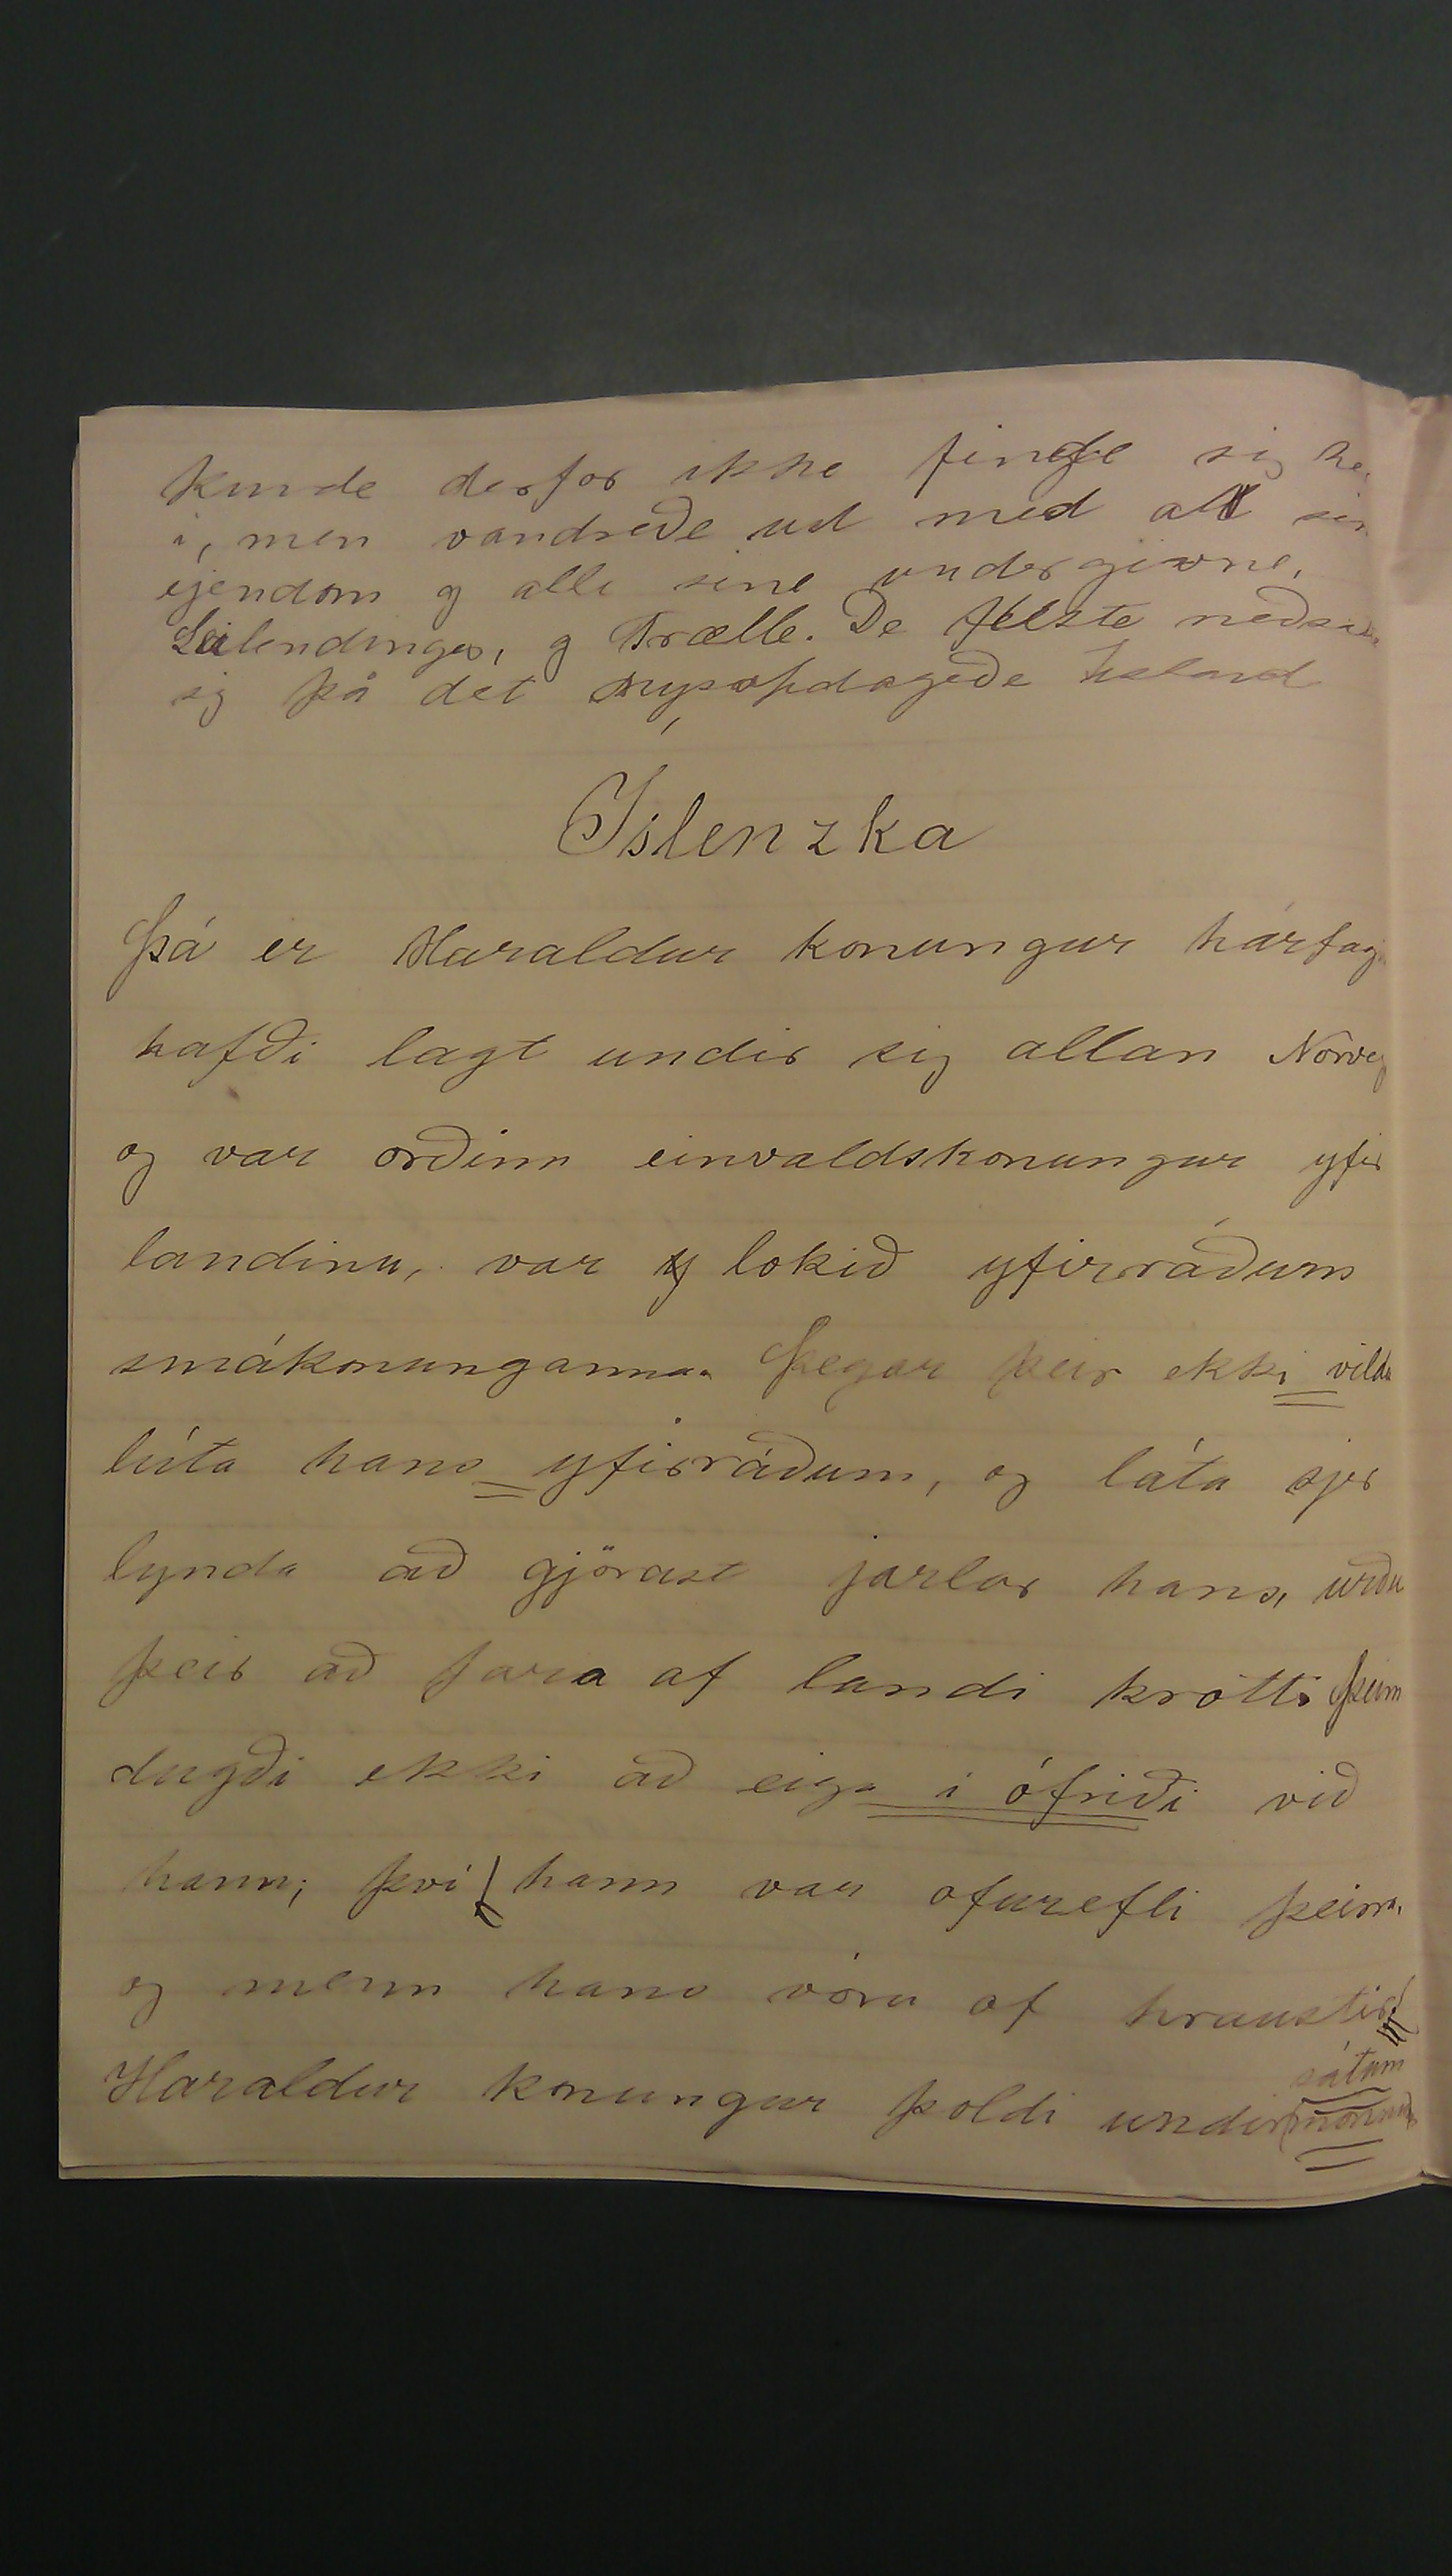 kunde derfor ikke finde sig he
i, men vandreðe ud med alt sin
ejendom og alle sine undergivne,
Leilendinger, og Trælle. De fleste neðsa
sig på det nysopdageðe Island
Íslenzka
Þá er Haraldur konungur hárfag
hafði lagt undir sig allan Norveg
og var orðinn einvaldskonungur yfir
landinu, var lokið yfirráðum
smákonunganna. Þegar þeir ekki vildu
lúta hans yfirráðum, og láta sjer
lynda að gjörast jarlar hans, urðu
þeir að fara af landi brott. Þeim
dugði ekki að eiga í ófriði við
hann; því hann var ofurefli þeirra,
og menn hans vóru af hraustir
sátum
Haraldur konungur þoldi undirmönnum